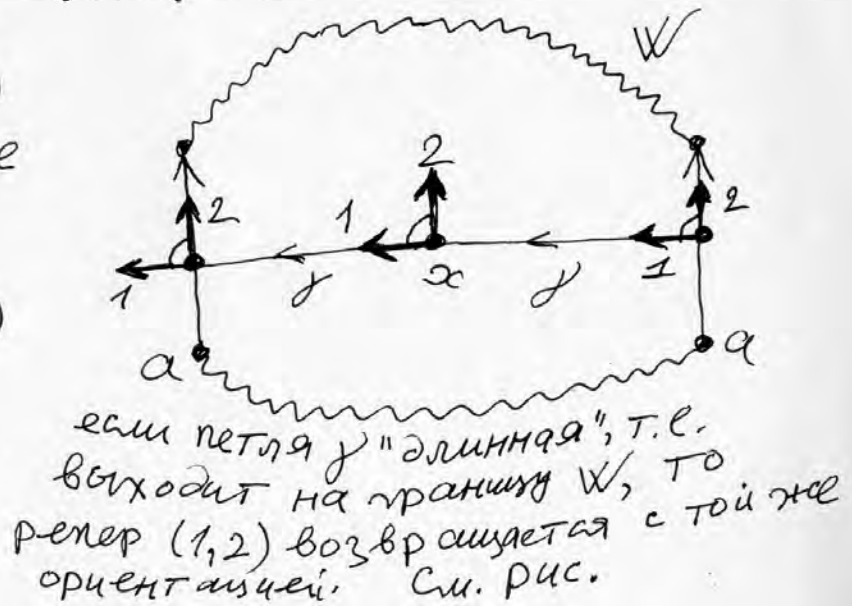 W
2
2
1
2
1
x
1
γ
γ
a
a
если петля γ "длинная", т.е.
выходит на границу W, то
репер (1,2) возвращается с той же
ориентацией. См. рис.